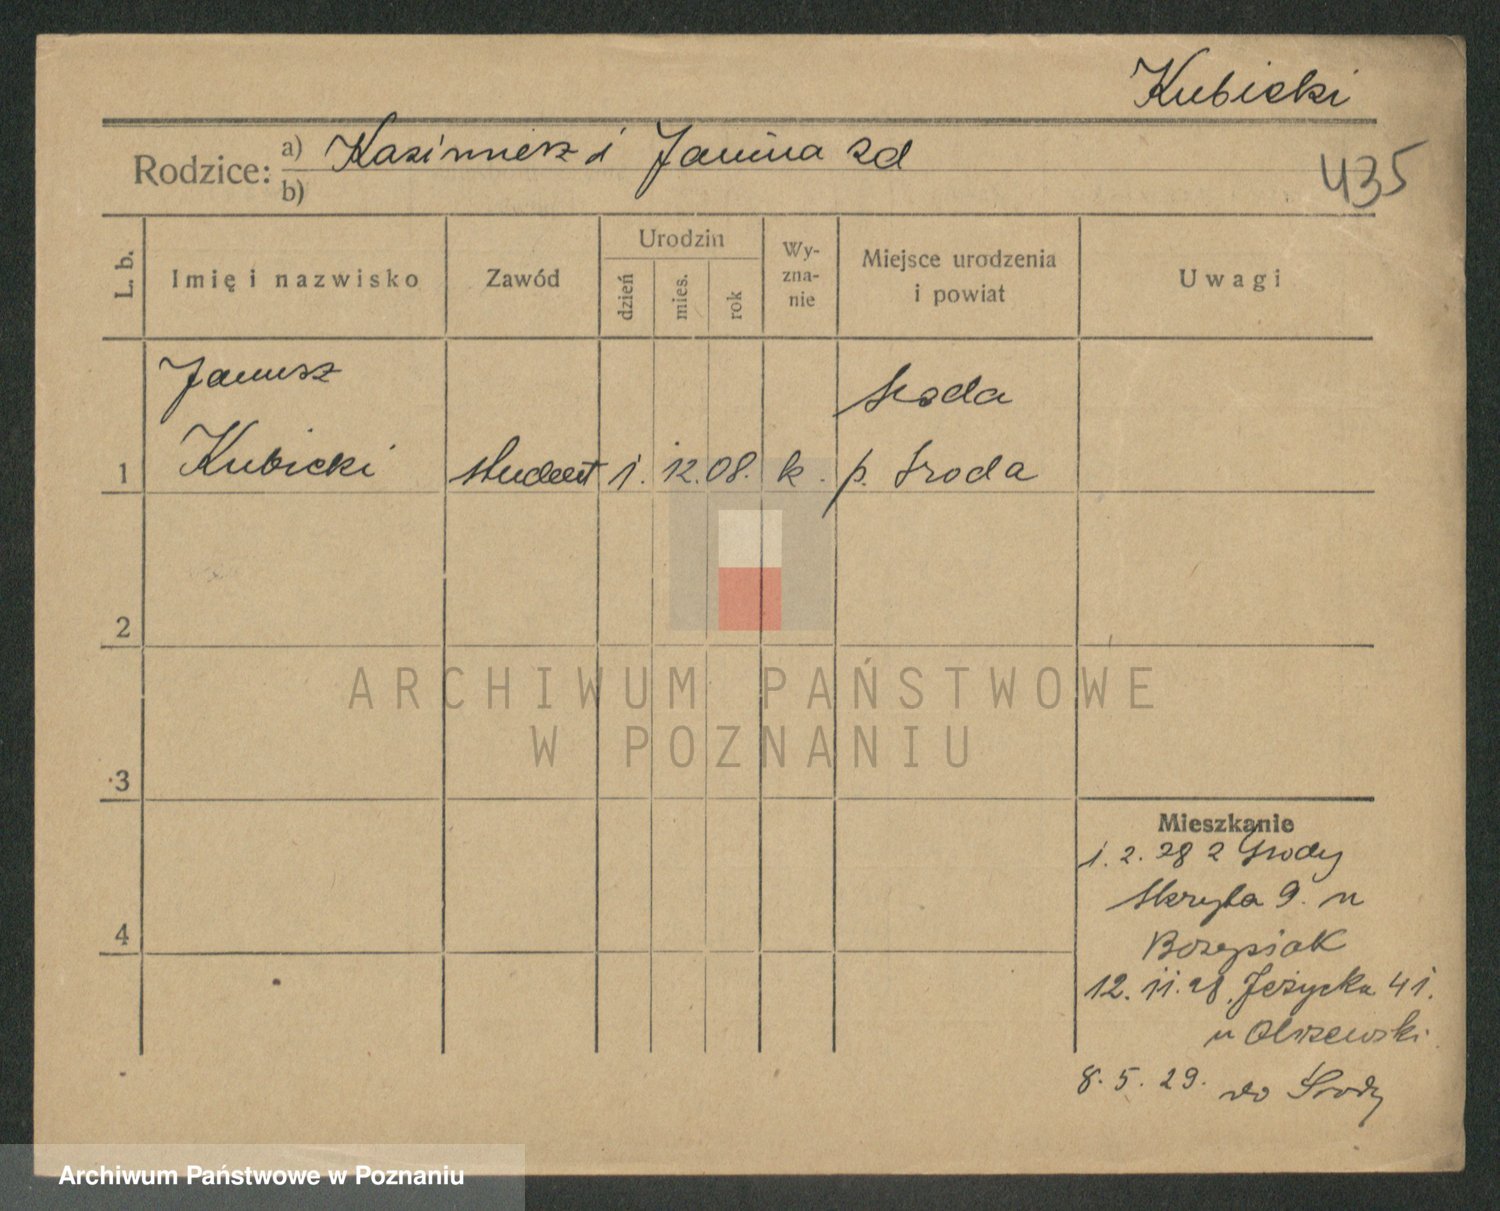 Kubicki
Rodzice: a) Kazimierz i Janina zd
b)
435
L. b.
Imię i nazwisko
Zawód
Urodzin
dzień
mies.
rok
Wy-
zna-
nie
Miejsce urodzenia
i powiat
Uwagi
Janusz
Środa
1 Kubicki student 1. 12. 08. k. p. Środa
2
ARCHIWUM PAŃSTWOWE
W POZNANIU
3
4
Mieszkanie
1. 2. 28 z Środy
9. u
12. 11. 28. Jeżycka 41.
u Olszewski
8. 5. 29. do Środy
Archiwum Państwowe w Poznaniu